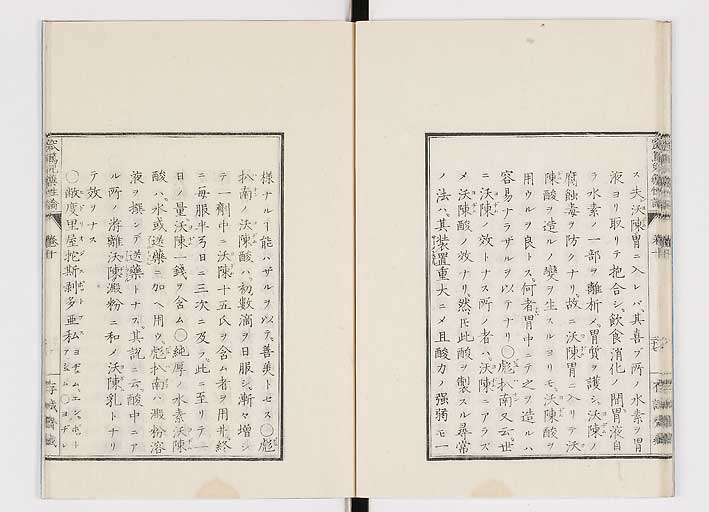 ス夫沃陳胃ニ入レバ其喜ブ所ノ水素ヲ胃
液ヨリ取リテ抱合シ飲食消化ノ間胃液自
ラ水素ノ一部ヲ離析メ胃質ヲ護シ沃陳ノ
腐蝕毒ヲ防クナリ故ニ沃陳胃ニ入リテ沃
陳酸ヲ造ルノ変ヲ生スルヨリモ沃陳酸ヲ
用ウルヲ良トス何者胃中ニテ之ヲ造ルハ
容易ナラザルヲ以テナリ〇彪扒南又云世
ニ沃陳ノ效トナス所ノ者ハ沃陳ニアラズ
メ沃陳酸ノ效ナリ然氏此酸ヲ製スル尋常
ノ法ハ其装置重大ニメ且酸力ノ強弱モ一
様ナルヿ能ハザルヲ以テ善美トセス〇彪
扒南ノ沃陳酸ハ初数滴ヲ日服シ漸々増シ
テ一劑中ニ沃陳十五氏ヲ含ム者ヲ用井終
ニ毎服半ヲ日ニ三次ニ及ヲ此ニ至リテ一
日ノ量沃陳一銭ヲ含ム〇純厚ノ水素沃陳
酸ハ水或送薬ニ加ヘ用ウ彪扒南ハ澱粉溶
液ヲ撰ンデ送薬トナス其説ニ云酸中ニア
ル所ノ游離沃陳澱粉ニ和メ沃陳乳トナリ
テ效ヲナス
〇歇度里屋陀斯剥多亜私
巻十